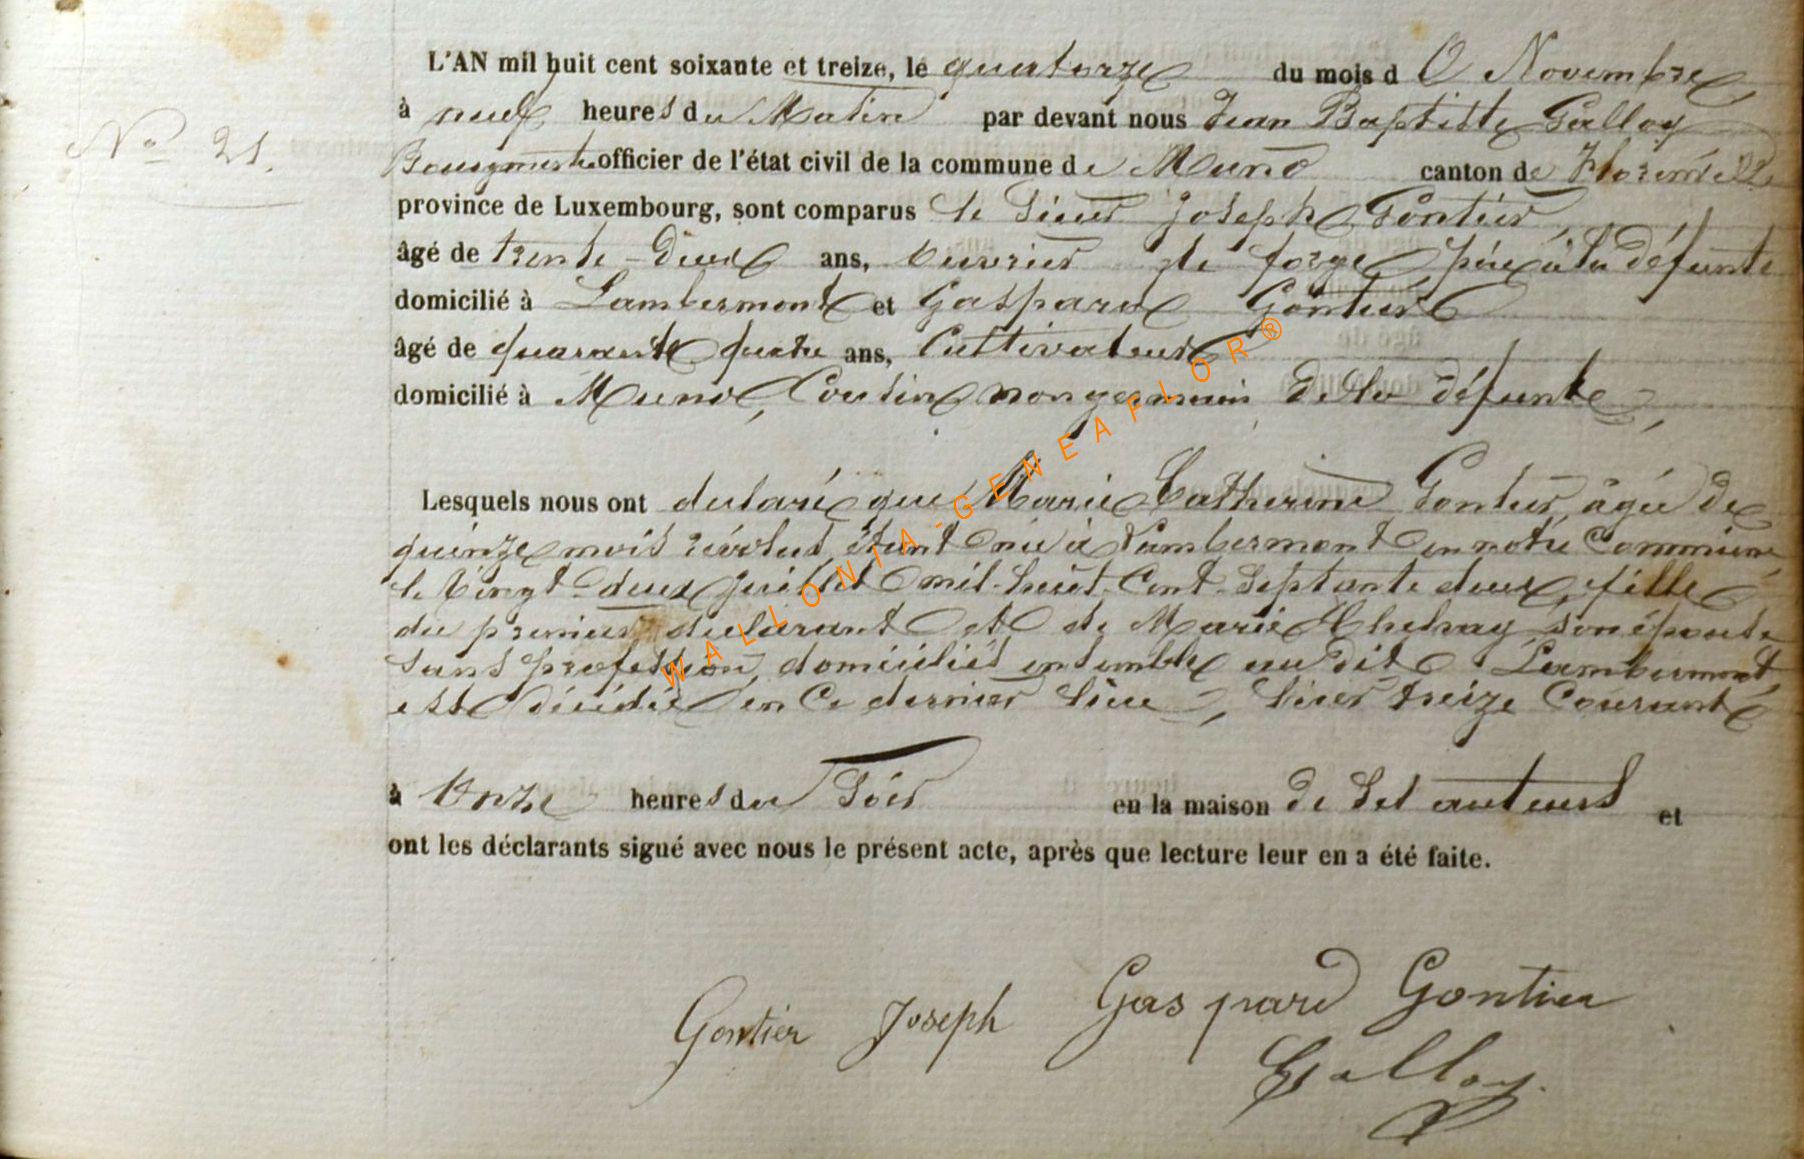 L'AN mil huit cent soixante et treize, le quatorze du mois d e Novembre
à neuf heures du Matin par devant nous Jean Baptiste Galloy
No 21.
Bourgmestre officier de l'état civil de la commune de Muno canton de Florenville
province de Luxembourg, sont comparus le Sieur Joseph Gontier,
âgé de trente-deux ans, ouvrier de forge, père à la défunte
domicilié à Lambermont et Gaspard Gontier
âgé de quarante quatre ans, Cultivateur
domicilié à Muno, Cousin non germain de la défunte,
Lesquels nous ont déclaré que Marie Catherine Gontier, âgée de
quinze mois révolus, étant née à Lambermont en notre Commune,
le vingt-deux juillet mil-huit-Cent-Septante deux, fille
du premier déclarant et de Marie son épouse
sans profession, domiciliés ensemble au dit Lambermont,
est décédée en ce dernier lieu, hier treize Courant
à onze heures du Soir en la maison de ses auteurs et
ont les déclarants sigué avec nous le présent acte, après que lecture leur en a été faite.
Gontier Joseph Gaspard Gontier
Galloy
WALLONIA-GENEAFLOR®